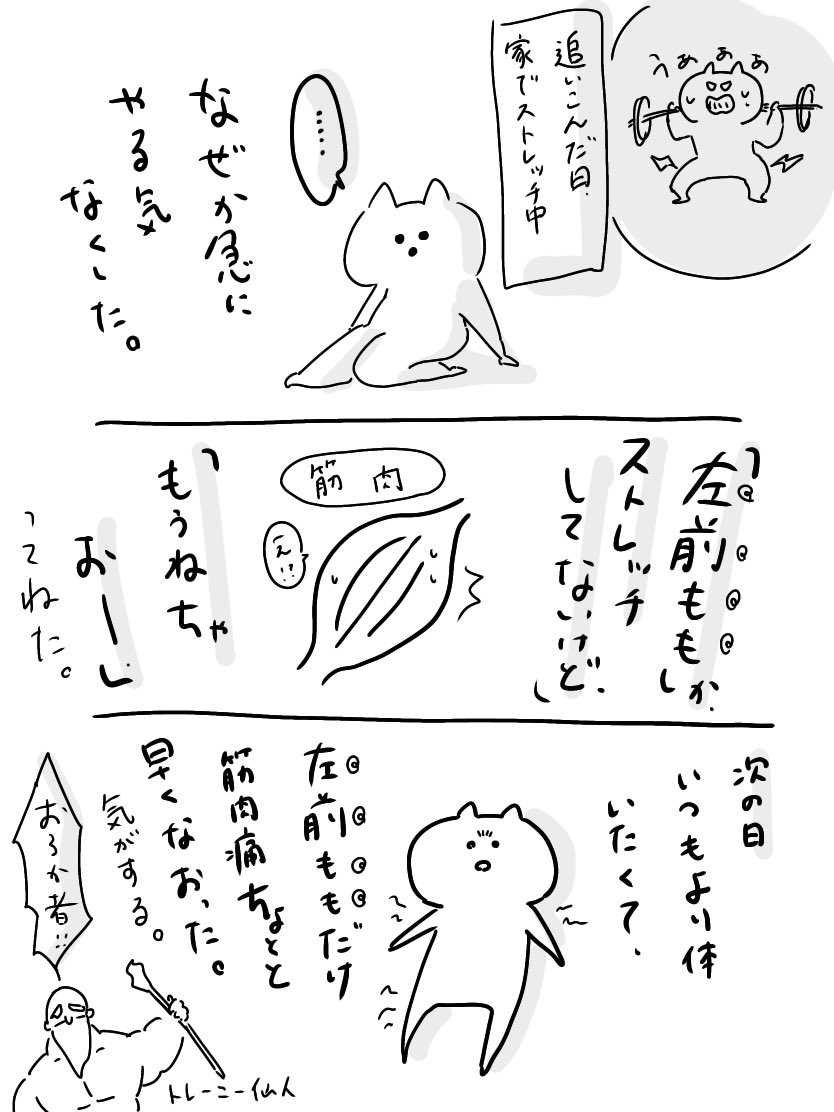 うぁぁぁ
追いこんだ日
家でストレッチ中
……
なぜか急に
やる気
なくした。
「左前ももしか
ストレッチ
してないけど、」
筋肉
え!?
「もうねちゃ
おー」
ってねた。
次の日
いつもより体
いたくて、
左前ももだけ
筋肉痛ちょっと
早くなおった。
気がする。
おろか者!!
トレーニー仙人